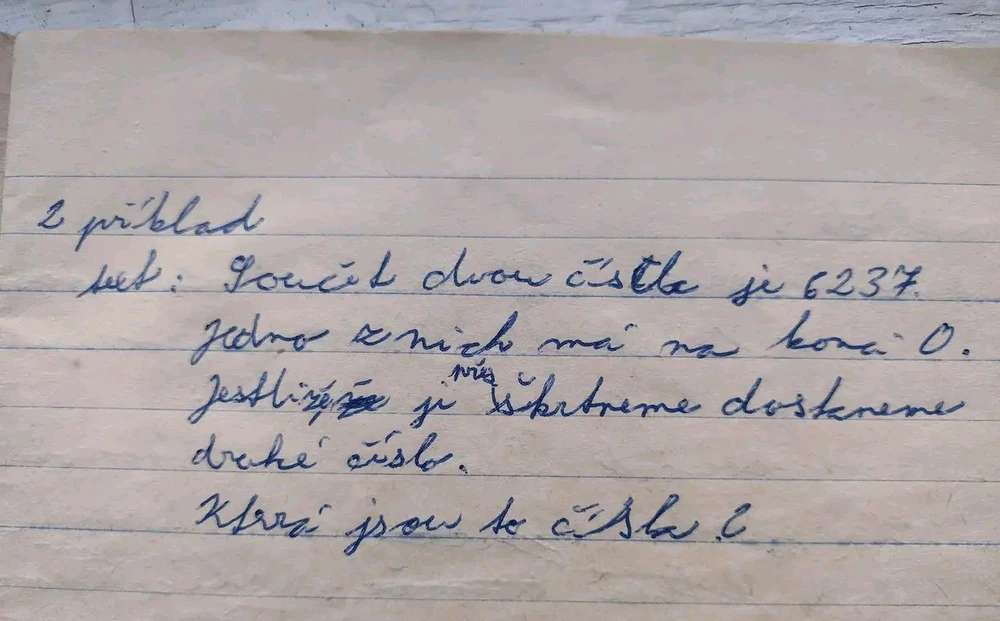 2 příklad
text: Součet dvou čísla je 6237.
Jedno z nich má na konci 0.
Jestliže ji přeškrtneme dostaneme
druhé číslo.
Která jsou to čísla?